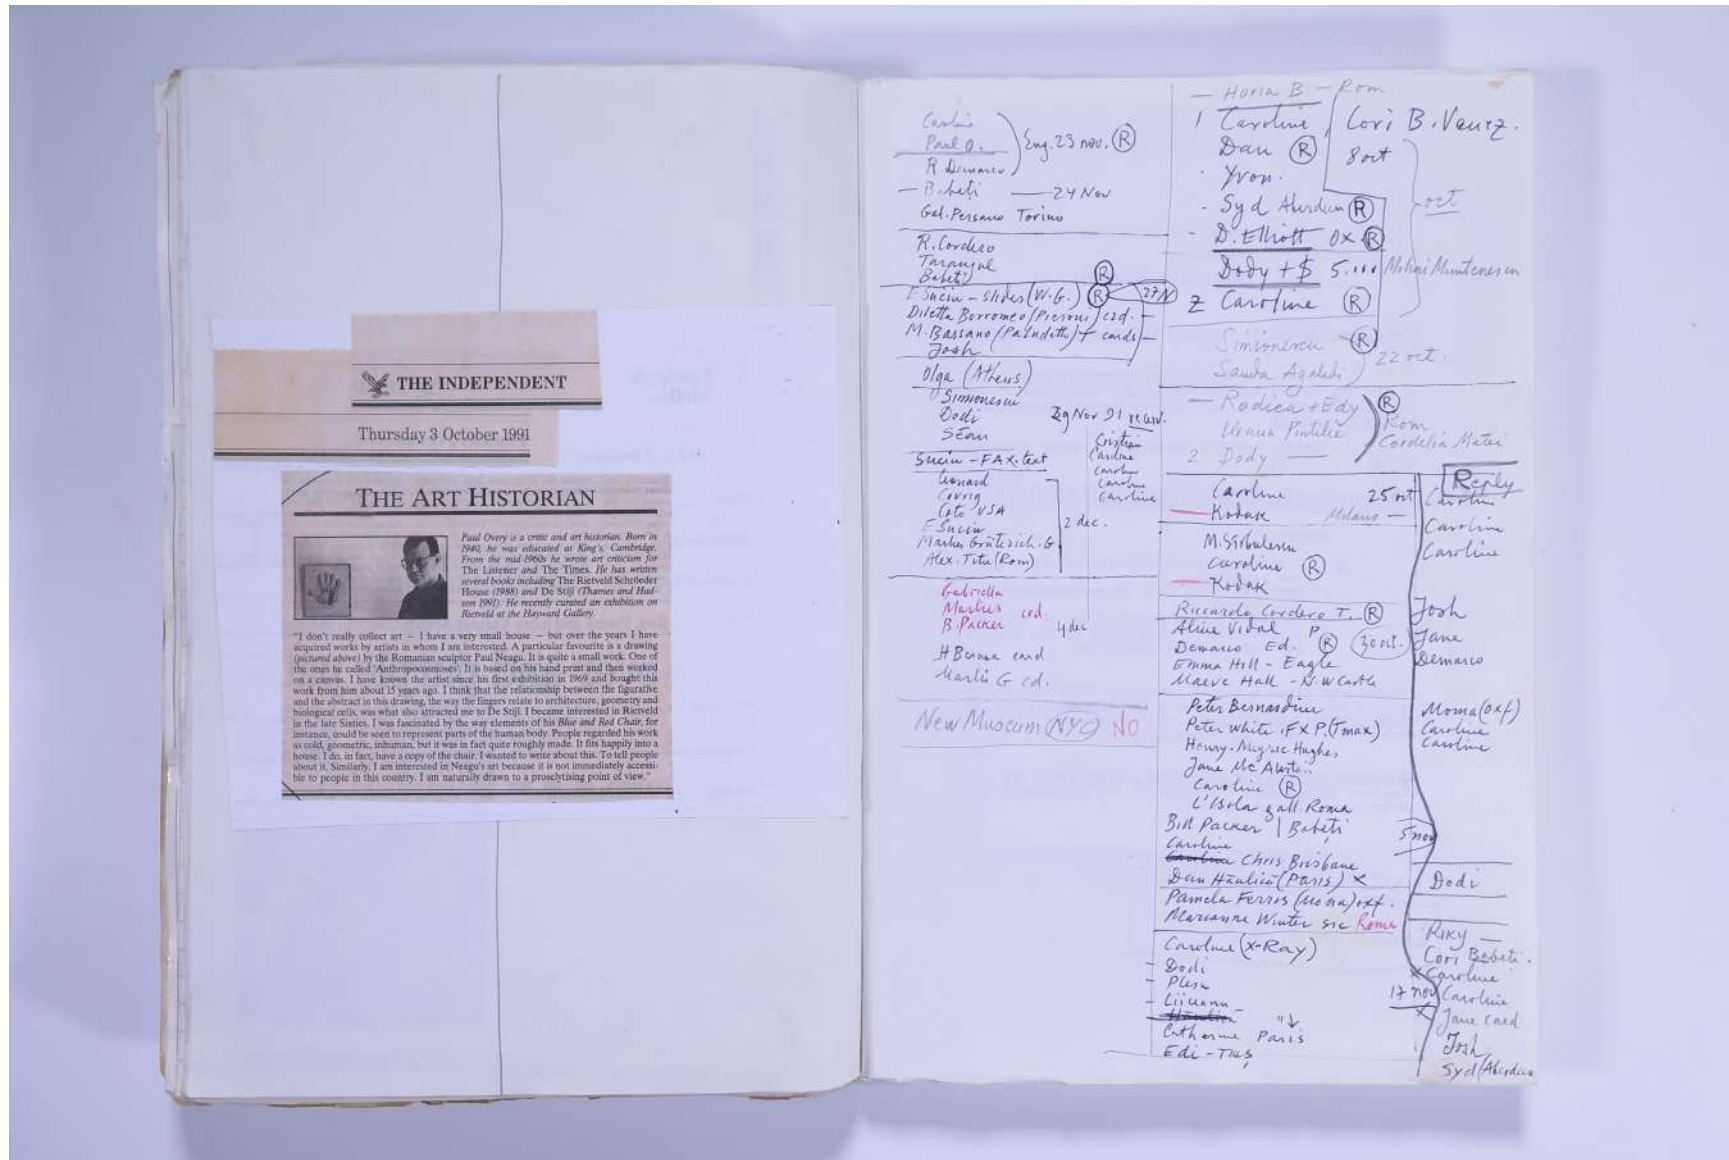 THE INDEPENDENT
Thursday 3 October 1991
THE ART HISTORIAN
Paul Overy is a critic and art historian. Born in
1940, he was educated at King's, Cambridge.
From the mid-1960s he wrote art criticism for
The Listener and The Times. He has written
several books including The Rietveld Schröeder
House (1988) and De Stijl (Thames and Hud-
son 1991). He recently curated an exhibition on
Rietveld at the Hayward Gallery.
"I don't really collect art — I have a very small house — but over the years I have
acquired works by artists in whom I am interested. A particular favourite is a drawing
(pictured above) by the Romanian sculptor Paul Neagu. It is quite a small work. One of
the ones he called 'Anthropocosmoses'. It is based on his hand print and then worked
on a canvas. I have known the artist since his first exhibition in 1969 and bought this
work from him about 15 years ago. I think that the relationship between the figurative
and the abstract in this drawing, the way the fingers relate to architecture, geometry and
biological cells, was what also attracted me to De Stijl. I became interested in Rietveld
in the late Sixties. I was fascinated by the way elements of his Blue and Red Chair, for
instance, could be seen to represent parts of the human body. People regarded his work
as cold, geometric, inhuman, but it was in fact quite roughly made. It fits happily into a
house. I do, in fact, have a copy of the chair. I wanted to write about this. To tell people
about it. Similarly, I am interested in Neagu's art because it is not immediately accessi-
ble to people in this country. I am naturally drawn to a proselytising point of view."
Caroline
Paul O. Eng. 23 nov. R
R Demarco
— Babeti — 24 Nov
Gal. Persano Torino
R. Cordero
Babeti R
E Suciu - slides (W.G.) R 27N
Diletta Borromeo (Pieroni) crd. —
M. Bassano (Paludetto) + cards —
Josh
Olga (Athens)
Simionescu
Dodi 29 Nov 91
Sean
Cristian
Caroline
Caroline
Caroline
Caroline
Suciu - FAX. text
Leonard
Covrig
Coto USA
E Suciu 2 dec.
Alex. Titu (Rom)
Gabriella
Marlies crd.
B. Packer 4 dec
H Berna card
Marlis G cd.
New Museum (NYC) NO
— Horia B — Rom
1 Caroline Cori B. Venez.
Dan R 8 oct
· Yvon.
- Syd Aberdeen R oct
- D. Elliott Ox R
Dody + $ 5.000 Mihai Muntenescu
2 Caroline R
Simionescu — R
Sanda Agalidi 22 oct.
— Rodica + Edy R
Ileana Pintilie Rom
Cordelia Matei
2 Dody —
Caroline 25 oct
— Kodak Milano —
Caroline R
— Kodak
Riccardo Cordero T. R
Aline Vidal P
Demarco Ed. R 30 oct.
Emma Hill - Eagle
Maeve Hall - N.W Castle
Peter Bernardine
Peter White . FX P. (Tmax)
Henry. Meyric Hughes
Jane McAlister
Caroline R
L'Isola gall Roma
Bill Packer | Babeti 5 nov
Caroline
Chris Brisbane
Dan Hăulică (Paris) x
Pamela Ferris (Moma) oxf.
Marianne Winter src Roma
Caroline (X-Ray)
- Dodi
- Plesu
- Liiceanu
Hăulică
Catherine Paris
Edi - Tmș
Reply
Caroline
Caroline
Caroline
Josh
Jane
Demarco
Moma (oxf)
Caroline
Caroline
Dodi
Rixy —
Cori Babeti.
x Caroline
17 nov Caroline
x Jane card
Josh
Syd (Aberdeen